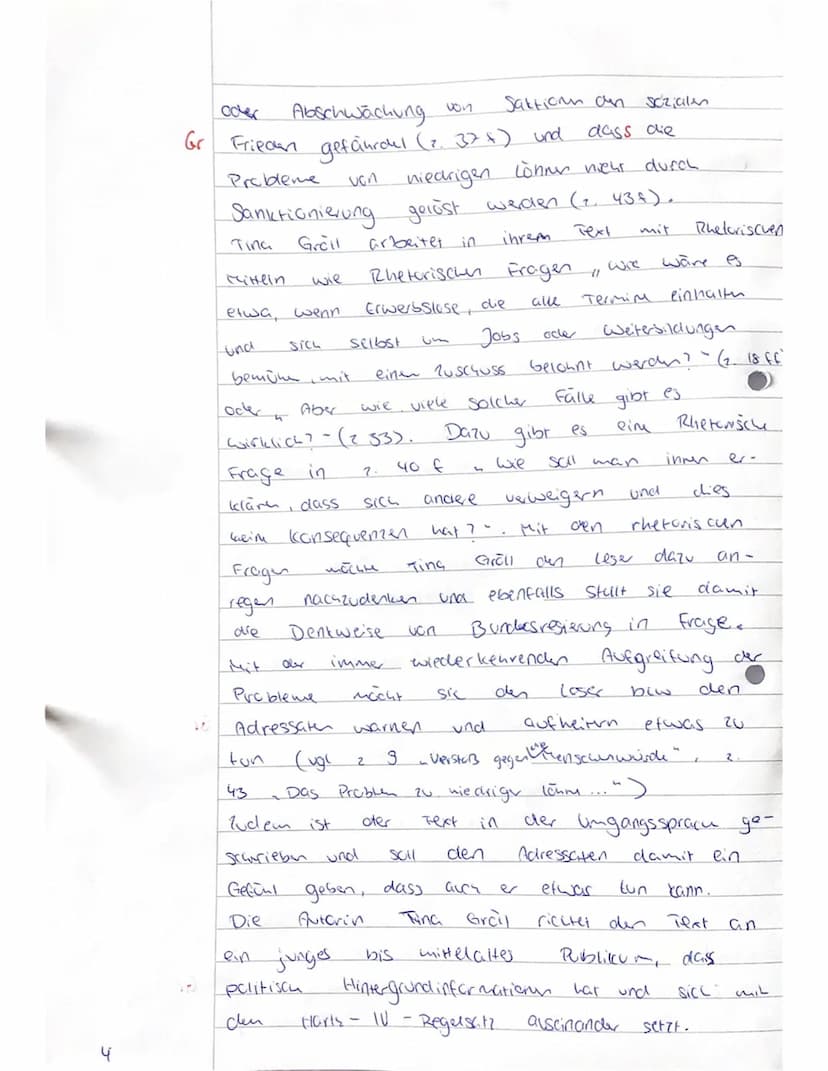 oder Abschwächung von Saktionen den sozialen
Gr Frieden gefährdet (z. 37f) und dass die
Probleme von niedrigen Löhnen nicht durch
Sanktionierung gelöst werden (z. 43f).
Tina Groll arbeitet in ihrem Text mit Rhetorischen
Mitteln wie Rhetorischen Fragen „Wie wäre es
etwa, wenn Erwerbslose, die alle Termine einhalten
und sich selbst um Jobs oder Weiterbildungen
bemühen, mit einen Zuschuss belohnt werden?" (z. 18 ff
oder „Aber wie viele solcher Fälle gibt es
wirklich?" (z 33). Dazu gibt es eine Rhetorische
Frage in z. 40 f „Wie soll man ihnen er-
klären, dass sich andere verweigern und dies
keine Konsequenzen hat?". Mit den rhetorischen
Fragen möchte Tina Groll den Leser dazu an-
regen nachzudenken und ebenfalls stellt sie damit
die Denkweise von Bundesregierung in Frage.
Mit der immer wiederkehrenden Aufgreifung der
Probleme möcht sie den Leser bzw den
Adressaten warnen und aufheitern etwas zu
tun (vgl z 9 „Verstoß gegen die Menschenwürde", z.
43 „Das Problem zu niedrige Löhne ...")
Zudem ist der Text in der Umgangssprache ge-
schrieben und soll den Adressaten damit ein
Gefühl geben, dass auch er etwas tun kann.
Die Autorin Tina Groll richtet den Text an
ein junges bis mittelaltes Publikum, dass
politisch Hintergrundinformationen hat und sich mit
den Hartz-IV-Regelsatz auseinander setzt.
4